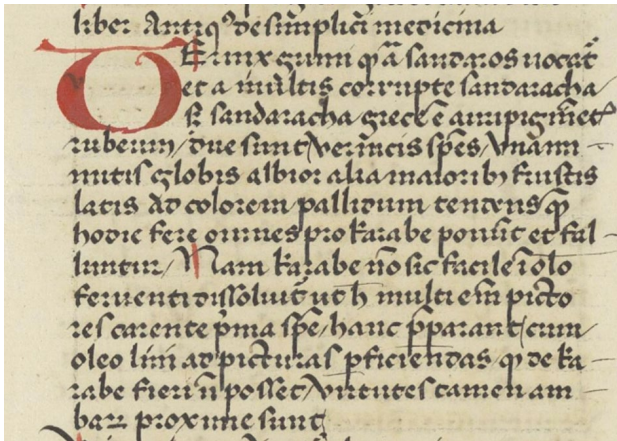 liber Antiqꝰ de simplici medicina
VErnix gumi qͣ a sandaros uocat᷑
et a multis corrupte sandaracha
sꝫ sandaracha grece ē auripigmētū
rubeum / due sunt vernicis spēs / vna in
nutis globis albior alia maiorib᷒ frustis
latis ad colorem pallidum tendens qͣ
hodie fere omnes pro karabe ponūt et fal
luntur / Nam karabe nō sic facile ī olo
feruenti dissoluit᷑ ut h̄ multi em̄ picto
res carente pͥma spē / hanc p̄parant / cum
oleo lini ad picturas ꝑficiendas qͩ de ka
rabe fieri n̄ posset / virtutes tamen am
barꝝ proxime sunt